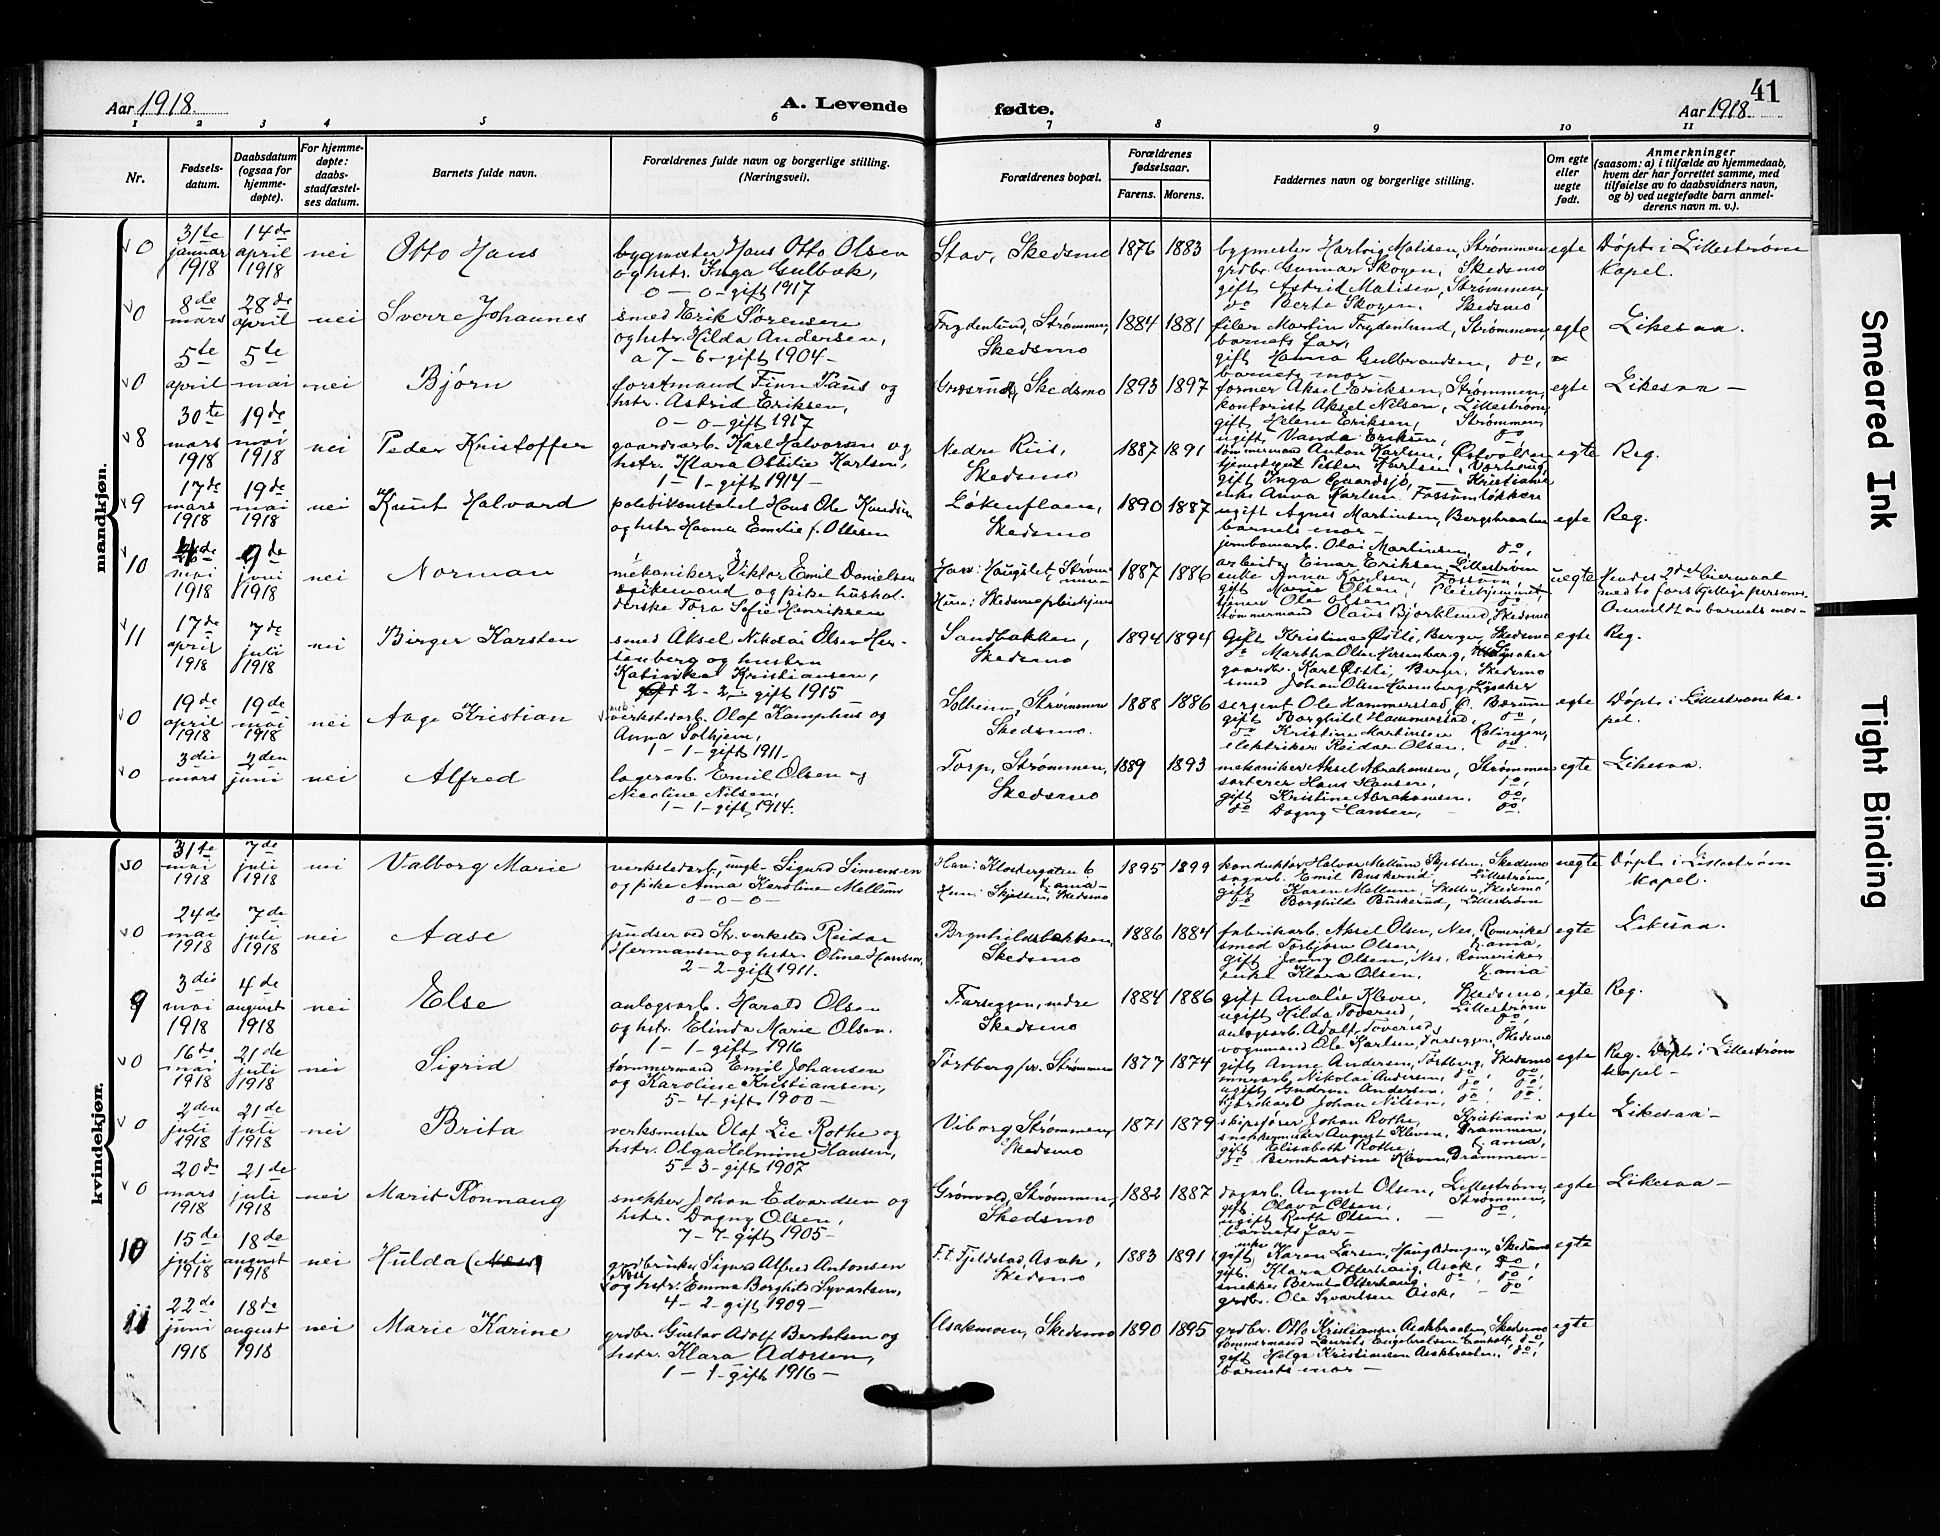 41
Aar 1918.
A. Levende
fødte.
Aar 1918.
1 2 3 4 5 6 7 8 9 10 11
Nr.
Fødsels-
datum.
Daabsdatum
(ogsaa for
hjemme-
døpte).
For hjemme-
døpte:
daabs-
stadfæstel-
ses datum.
Barnets fulde navn.
Forældrenes fulde navn og borgerlige stilling.
(Næringsvei).
Forældrenes bopæl.
Forældrenes
fødselsaar.
Farens. Morens.
Faddernes navn og borgerlige stilling.
Om egte
eller
uegte
født.
Anmerkninger
(saasom: a) i tilfælde av hjemmedaab,
hvem der har forrettet samme, med
tilføielse av to daabsvidners navn,
og b) ved uegtefødte barn anmel-
derens navn m. v.).
mandkjøn.
0
31te januar 1918
14de april 1918
nei
Otto Hans
bygmester Hans Otto Olsen
og hstr. Inga Gulbak,
0 - 0 - gift 1917
Stav, Skedsmo
1876 1883
bygmester Hartvig Matisen, Strømmen
grdbr. Gunnar Skogen, Skedsmo
gift Astrid Matisen, Strømmen,
do Berte Skogen. Skedsmo
egte
Døpt i Lillestrøm
Kapel.
0
8de mars
28de april
nei
Sverre Johannes
smed Erik Sørensen
og hstr. Hilda Andersen,
a 7 - 6 - gift 1904 -
Frydenlund, Strømmen,
Skedsmo
1884 1881
filer Martin Frydenlund, Strømmen,
barnets far,
gift Hanna Gulbrandsen, do,
barnets mor -
egte
Likesaa.
0
5te april
5te mai
nei
Bjørn
forstmand Finn Paus og
hstr. Astrid Eriksen,
0 - 0 - gift 1917
Skedsmo
1893 1897
former Aksel Eriksen, Strømmen,
kontorist Aksel Nilsen, Lillestrøm
gift Helene Eriksen, Strømmen,
ugift Vanda Eriksen, do
egte
Likesaa -
8
30te mars 1918
19de mai 1918
nei
Peder Kristoffer
gaardsarb. Karl Halvorsen og
hstr. Klara Ottilie Karlsen,
1 - 1 - gift 1914 -
Nedre Riis,
Skedsmo
1887 1891
tømmermand Anton Karlsen,
gift Inga Gaardsjø, Kristiania
enke Anna Karlsen
egte
Reg.
9
17de mars 1918
19de mai 1918
nei
Knut Halvard
politikonstabel Hans Ole Knudsen
og hstr. Hanna Emelie f. Ottesen
Løkenflaen,
Skedsmo
1890 1887
ugift Agnes Martinsen, Bergsbraaten
barnets mor -
jernbanearb. Olai Martinsen, do,
egte
Reg.
10
mai 1918
9de juni 1918
nei
Norman
mekaniker Viktor Emil Danielsen
og pike hushol-
derske Tora Sofie Henriksen
Han: Haugslet, Strøm-
men -
Hun: Skedsmo pleiehjem
1887 1886
arbeider Einar Eriksen, Lillestrøm
enke Anna Karlsen, Fossum,
gift Marie Olsen, Pleiehjemmet
Ola Olsen do
tømmermand Olaus Bjørklund, Skedsmo
uegte
Hendes 2det leiermaal
med to forskjellige personer.
Anmeldt av barnets mor -
11
17de april 1918
7de juli 1918
nei
Birger Karsten
smed Aksel Nikolai Olsen Her-
senberg og hustru
Katinka Kristiansen,
2 - 2 - gift 1915
Sandbakken,
Skedsmo
1894 1894
gift Kristine Østli, Berger, Skedsmo
do Martha Olsen Hersenberg, Lysaker
gaardbr. Karl Østli, Berger, Skedsmo
smed Johan Olsen Hersenberg, Lysaker
egte
Reg.
0
19de april 1918
19de mai 1918
nei
Aage Kristian
verkstedarb. Olaf Kamphus og
Anna Solhjem,
1 - 1 - gift 1911.
Solheim, Strømmen
Skedsmo.
1888 1886
sergent Ole Hammerstad, Ø. Bærum
gift Borghild Hammerstad, do,
do Kristine Martinsen Rælingen,
elektriker Reidar Olsen. do.
egte
Døpt i Lillestrøm ka-
pel.
0
3die mars
2den juni
nei
Alfred
lagerarb. Emil Olsen og
Nicoline Nilsen,
1 - 1 - gift 1914.
Torp, Strømmen,
Skedsmo
1889 1893
mekaniker Aksel Abrahamsen, Strømmen
sorterer Hans Hansen, do,
gift Kristine Abrahamsen. do,
do Dagny Hansen, do,
egte
Likesaa.
kvindekjøn.
0
31te mai 1918
7de juli 1918
nei
Valborg Marie
verkstedarb., ungk. Sigurd Simensen
og pike Anna Karoline Mellum
0 - 0 - 0 -
Han: Klostergaten 6
Kania -
Hun: Skjetten, Skedsmo
1895 1899
konduktør Halvor Mellum Skjetten, Skedsmo
sagarb. Emil Buskerud, Lillestrøm,
gift Karen Mellum, Skjetten, Skedsmo
do Borghild Buskerud, Lillestrøm
uegte
Døpt i Lillestrøm
Kapel.
0
24de mai 1918
7de juli 1918
nei
Aase
pudser ved Str. verksted Reidar
Hermansen og hstr. Oline Hansen,
2 - 2 - gift 1911.
Brynhildsbakken,
Skedsmo
1886 1884
fabrikarb. Aksel Olsen, Nes, Romerike
smed Torbjørn Olsen, Kania,
gift Jenny Olsen, Nes, Romerike,
enke Klara Olsen, Kania
egte
Likesaa.
9
3die mai 1918
4de august 1918
nei
Else
anlægsarb. Harald Olsen
og hstr. Elinda Marie Olsen.
1 - 1 - gift 1916
Farseggen, nedre
Skedsmo
1884 1886
gift Amalie Kleven, Skedsmo,
ugift Hilda Toverud, Lillestrøm
anlægsarb. Adolf Toverud, do,
vognmand Ole Karlsen, Farseggen, Skedsmo
egte
Reg.
0
16de mai 1918
21de juli 1918
nei
Sigrid
tømmermand Emil Johansen
og Karoline Kristiansen,
5 - 4 - gift 1900 -
Torstberg pr. Strømmen
1877 1874
gift Anne Andersen, Torstberg, Skedsmo
murarb. Nikolai Andersen, do, do,
ugift Gudrun Andersen, do, do,
Johan Nilsen, do, do.
egte
Reg. Døpt i Lillestrøm
kapel -
0
2den juli 1918
21de juli 1918
nei
Brita
verksmester Olaf Lie Rothe og
hstr. Olga Helmine Hansen,
5 - 3 - gift 1907
Viborg, Strømmen,
Skedsmo
1871 1879
skipsfører Johan Rothe, Kristiania
snekkermester August Kleven, Drammen,
gift Elisabeth Rothe, Kania,
do Bernhardine Kleven, Drammen -
egte
Likesaa -
0
20de mars 1918
21de juli 1918
nei
Marit Rønnaug
snekker Johan Edvardsen og
hstr. Dagny Olsen,
7 - 7 - gift 1905 -
Grønvold, Strømmen,
Skedsmo
1882 1887
dagarb. August Olsen, Lillestrøm,
gift Olava Olsen, Strømmen,
ugift Ruth Olsen, - do,
barnets far -
egte
Likesaa -
10
15de juli 1918
18de august 1918
nei
Hulda (Næss)
grdbruker Sigurd Alfred Antonsen
Næss
og hstr. Emma Borghild Syvartsen,
4 - 2 - gift 1909 -
F.t. Fjeldstad, Asak,
Skedsmo
1883 1891
enke
gift Karen Larsen, Skedsmo
gift Klara Otterhaug, Asak, do,
snekker Bernt Otterhaug, do, do,
grdbr. Ole Syvartsen Asak, - do
egte
11
22de juni 1918
18de august 1918
nei
Marie Karine
grdbr. Gustav Adolf Bertelsen og
hstr. Klara Adorsen,
1 - 1 - gift 1916 -
Asakmoen, Skedsmo
1890 1895
grdbr. Otto Kristiansen Asakbraaten, Skedsmo
tømmermand Laurits Engebretsen do,
gift Helga Kristiansen Asakbraaten, do,
barnets mor -
egte
Smeared Ink
Tight Binding